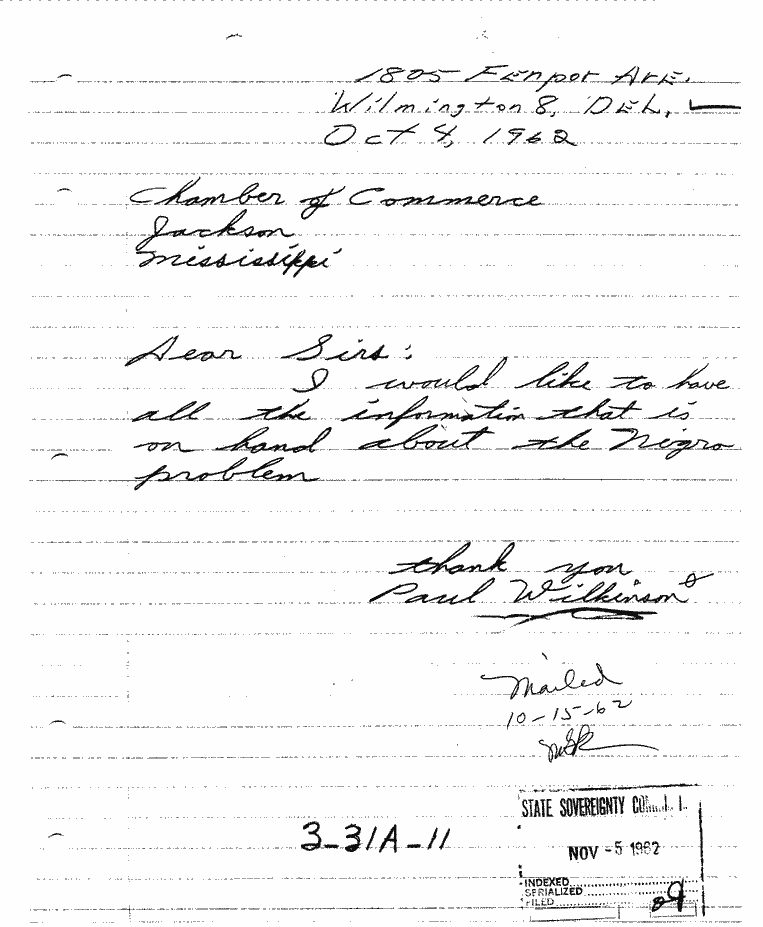 1805 Fenpor AvE.
Wilmington 8, DEL.
Oct 4, 1962
Chamber of Commerce
Jackson
Mississippi
Dear Sirs:
I would like to have
all the information that is
on hand about the Nigro
problem
thank you
Paul Wilkinson
Mailed
10-15-62
3-31A-11
STATE SOVEREIGNTY
NOV -5 1962
INDEXED
SERIALIZED
FILED